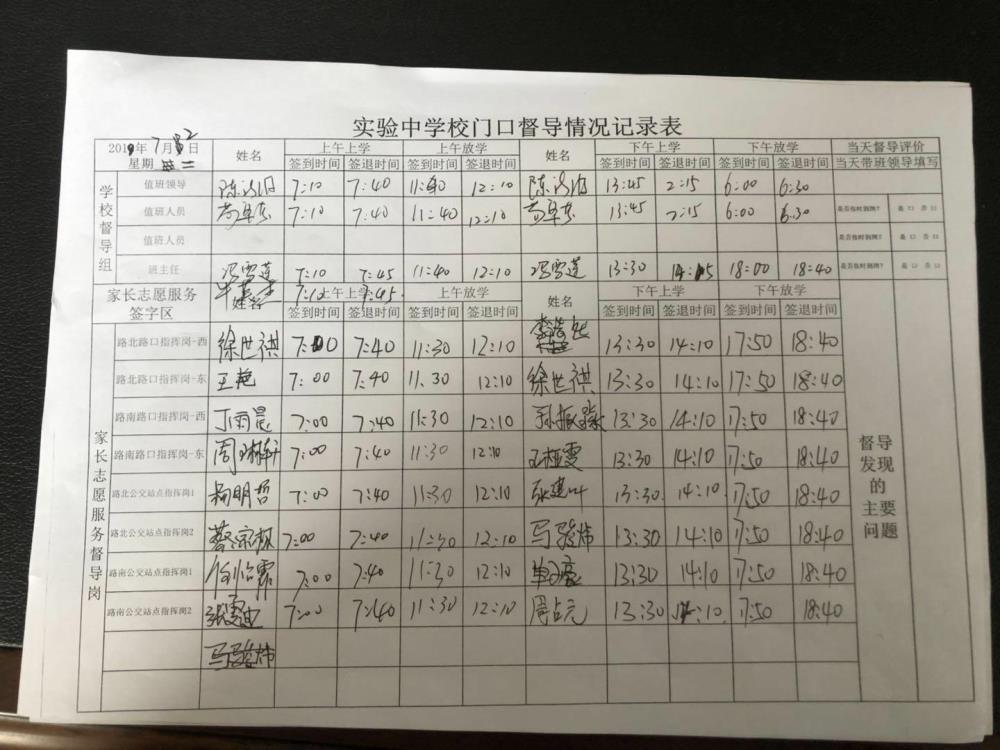 实验中学校门口督导情况记录表
2019年7月2日 姓名 上午上学 上午放学 姓名 下午上学 下午放学 当天督导评价
星期二 签到时间 签退时间 签到时间 签退时间 签到时间 签退时间 签到时间 签退时间 当天带班领导填写
学校督导组
值班领导 7:10 7:40 11:40 12:10 13:45 2:15 6:00 6:30
值班人员 7:10 7:40 11:40 12:10 13:45 2:15 6:00 6:30 是否临时到岗? 是 口 否 口
值班人员 是否临时到岗? 是 口 否 口
班主任 冯雪莲 7:10 7:45 11:40 12:10 冯雪莲 13:30 14:15 18:00 18:40 是否临时到岗? 是 口 否 口
7:10 7:45
家长志愿服务 姓名 上午上学 上午放学 姓名 下午上学 下午放学
签字区 签到时间 签退时间 签到时间 签退时间 签到时间 签退时间 签到时间 签退时间
家长志愿服务督导岗
路北路口指挥岗-西 徐世祺 7:00 7:40 11:30 12:10 13:30 14:10 17:50 18:40
路北路口指挥岗-东 王艳 7:00 7:40 11:30 12:10 徐世祺 13:30 14:10 17:50 18:40
路南路口指挥岗-西 丁雨晨 7:00 7:40 11:30 12:10 13:30 14:10 17:50 18:40
路南路口指挥岗-东 7:00 7:40 11:30 12:10 王桠雯 13:30 14:10 17:50 18:40
路北公交站点指挥岗1 杨明哲 7:00 7:40 11:30 12:10 13:30 14:10 17:50 18:40
路北公交站点指挥岗2 7:00 7:40 11:30 12:10 13:30 14:10 17:50 18:40
路南公交站点指挥岗1 7:00 7:40 11:30 12:10 13:30 14:10 17:50 18:40
路南公交站点指挥岗2 7:00 7:40 11:30 12:10 周占元 13:30 14:10 17:50 18:40
督导
发现
的
主要
问题